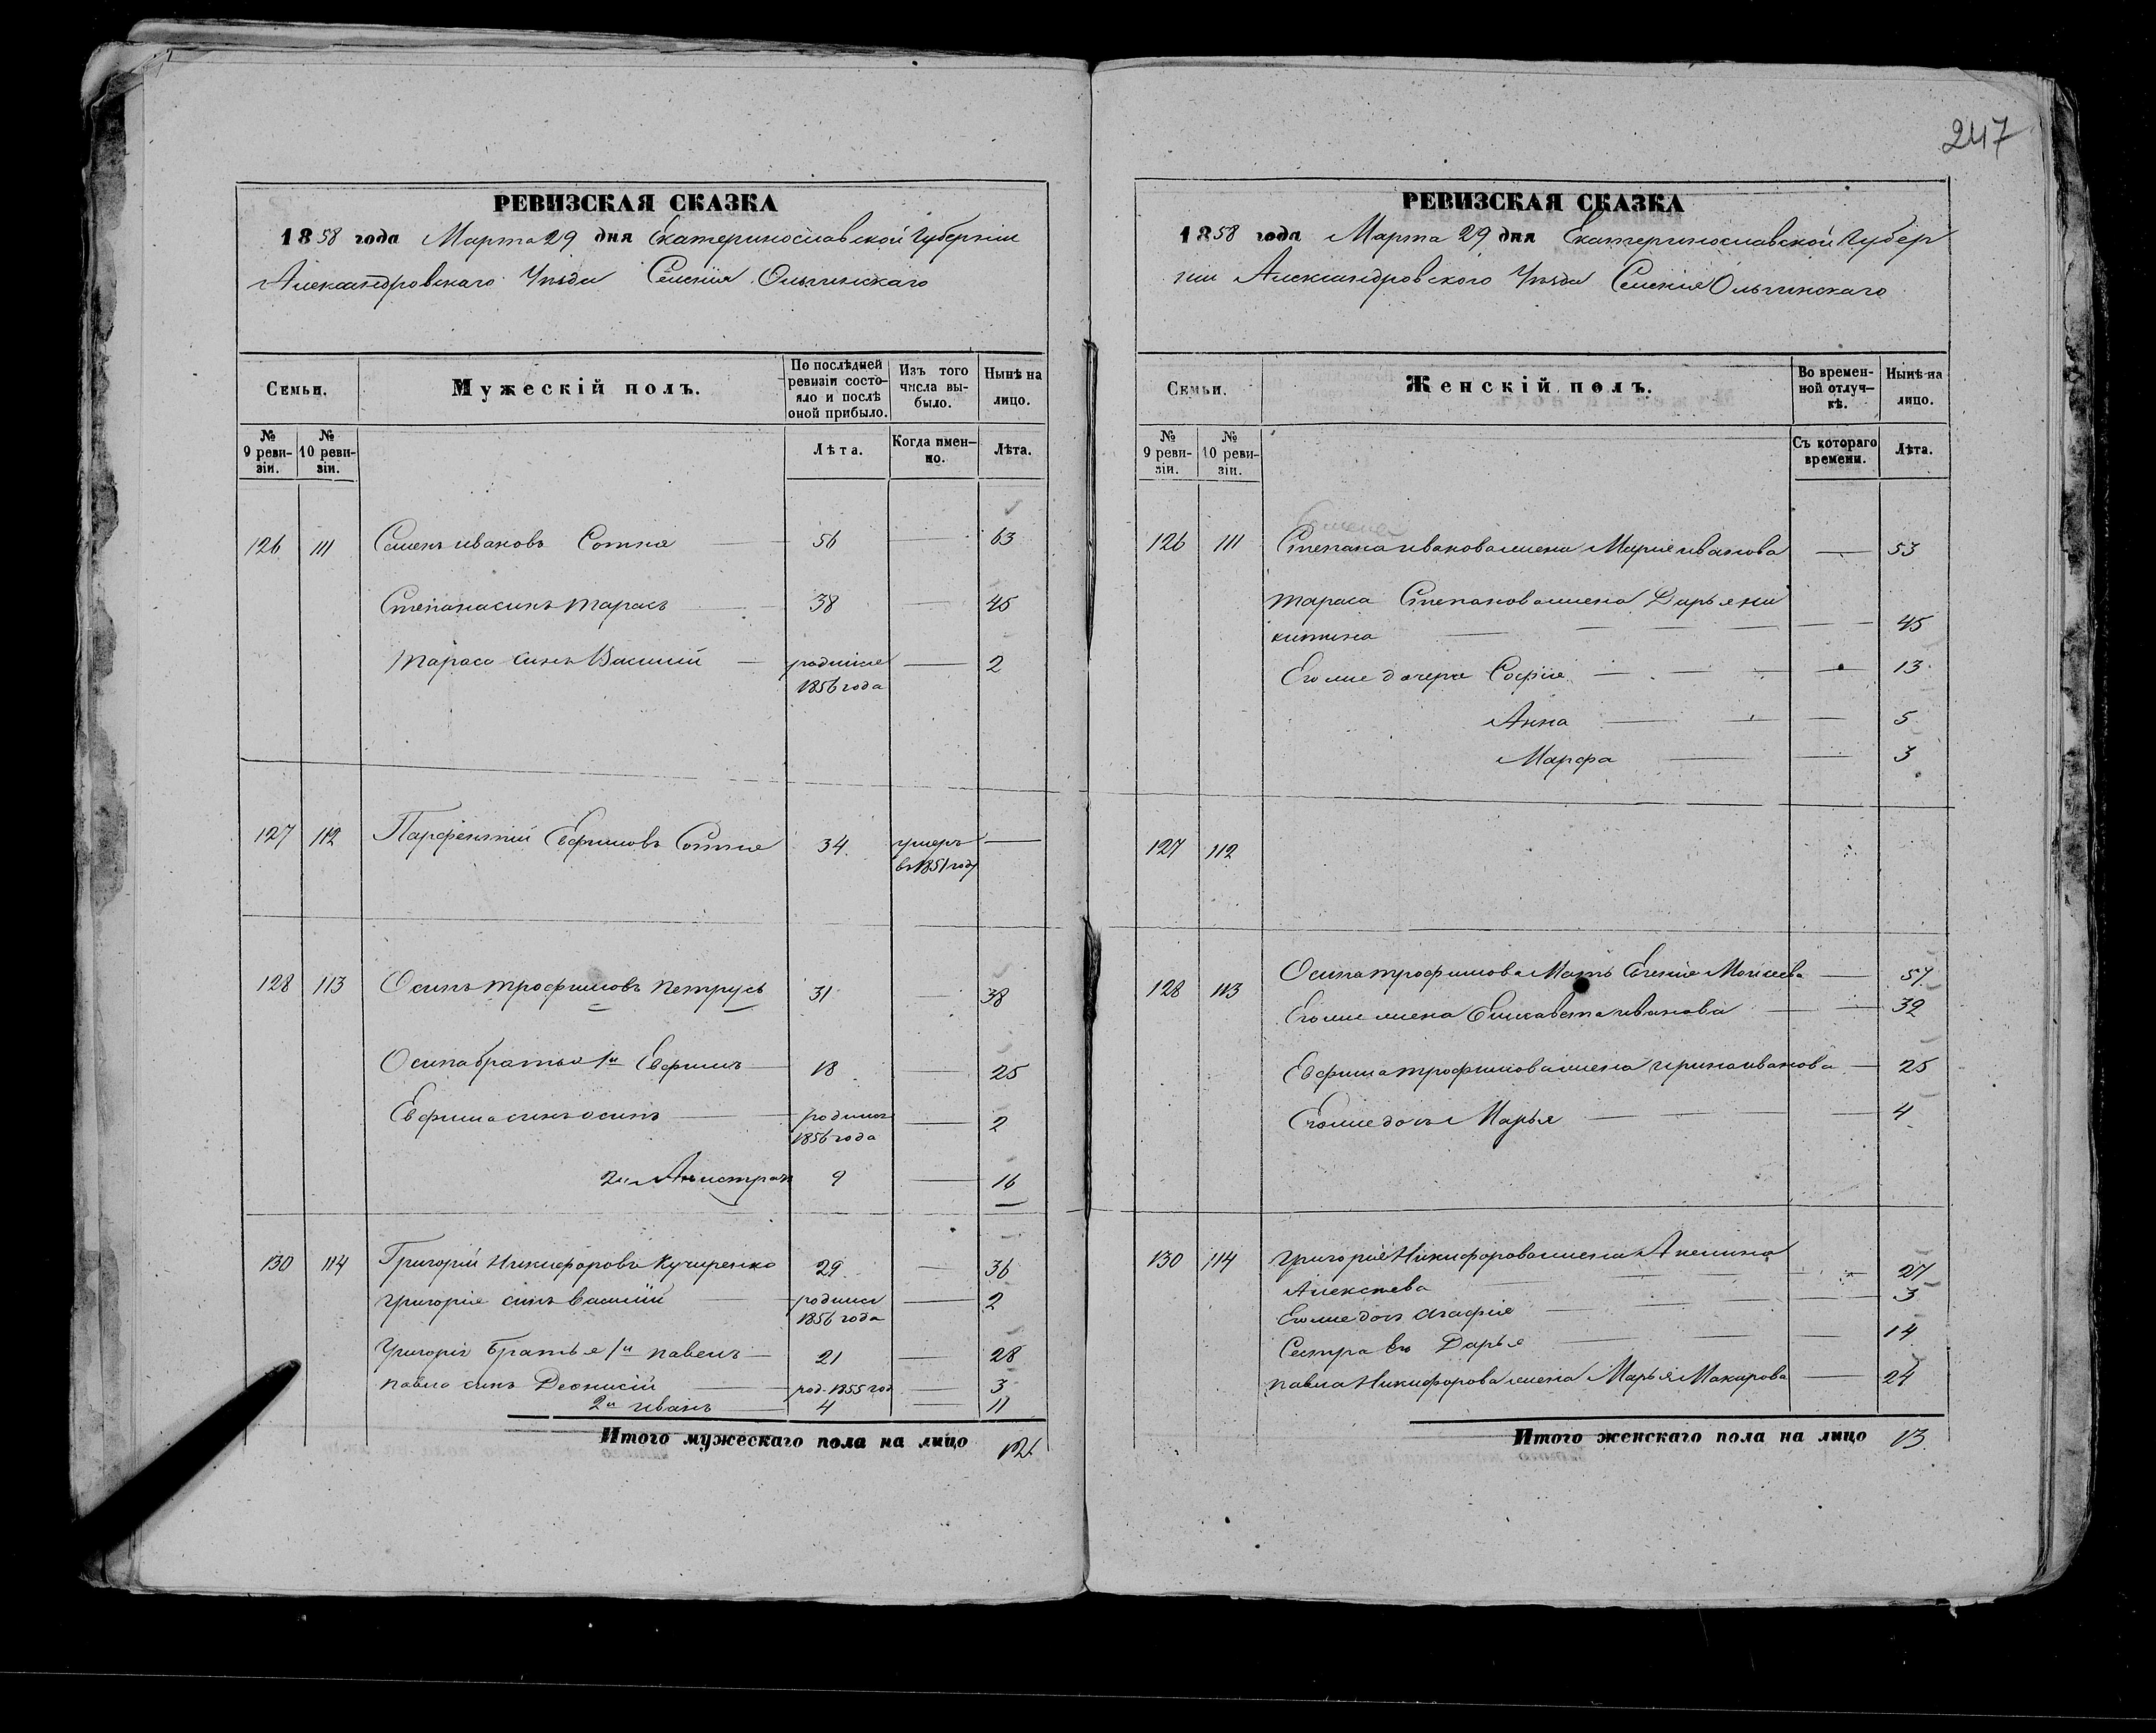 247
РЕВИЗСКАЯ СКАЗКА
1858 года Марта 29 дня Екатеринославской Губерніи
Александровскаго Уѣзда Селенія Ольгинскаго
Семьи.
Мужескій полъ.
По послѣдней ревизіи состо-
яло и послѣ оной прибыло.
Изъ того числа вы-
было.
Нынѣ на лицо.
№ 9 реви-
зіи.
№ 10 реви-
зіи.
Лѣта.
Когда имен-
но.
Лѣта.
126 111 Семенъ ивановъ Сотна 56 — 63
Степана синъ тарасъ 38 — 45
тараса синъ Василій — родился — 2
1856 года
127 112 Парфентий Ефимовъ Сотна 34 умеръ —
въ 1851 году
128 113 Осипъ трофимовъ петрусь 31 — 38
Осипа братья 1й Евфимъ 18 — 25
Евфима синъ осипъ родился — 2
1856 года
2й 9 — 16
130 114 Григорій Никифоровъ Кучиренко 29 — 36
григорія синъ василій родился — 2
1856 года
Григорія братья 1й павелъ 21 — 28
павла синъ Деонисій род. 1855 год — 3
2й иванъ 4 — 11
Итого мужескаго пола на лицо 12
РЕВИЗСКАЯ СКАЗКА
1858 года Марта 29 дня Екатеринославской Губер
ніи Александровского Уѣзда Селенія Ольгинскаго
Семьи.
Женскій полъ.
Во времен-
ной отлуч-
кѣ.
Нынѣ на лицо.
№ 9 реви-
зіи.
№ 10 реви-
зіи.
Съ котораго времени.
Лѣта.
Семена
126 111 Степана иванова жена Марія иванова — 53
тараса Степанова жена Дарья ни
китина — 45
Его же дочери Софія — 13
Анна — 5
Марфа — 3
127 112
128 113 Осипа трофимова Мать Евгенія Моисеева — 57
Его же жена Елисавета иванова — 32
Евфима трофимова жена ирина иванова — 25
Его же дочь Марья — 4
130 114 григорія Никифорова жена Акелина
Алексѣева — 27
Его же дочь агафія — 3
Сестра въ Дарья — 14
павла Никифорова жена Марья Макарова — 24
Итого женскаго пола на лицо 13